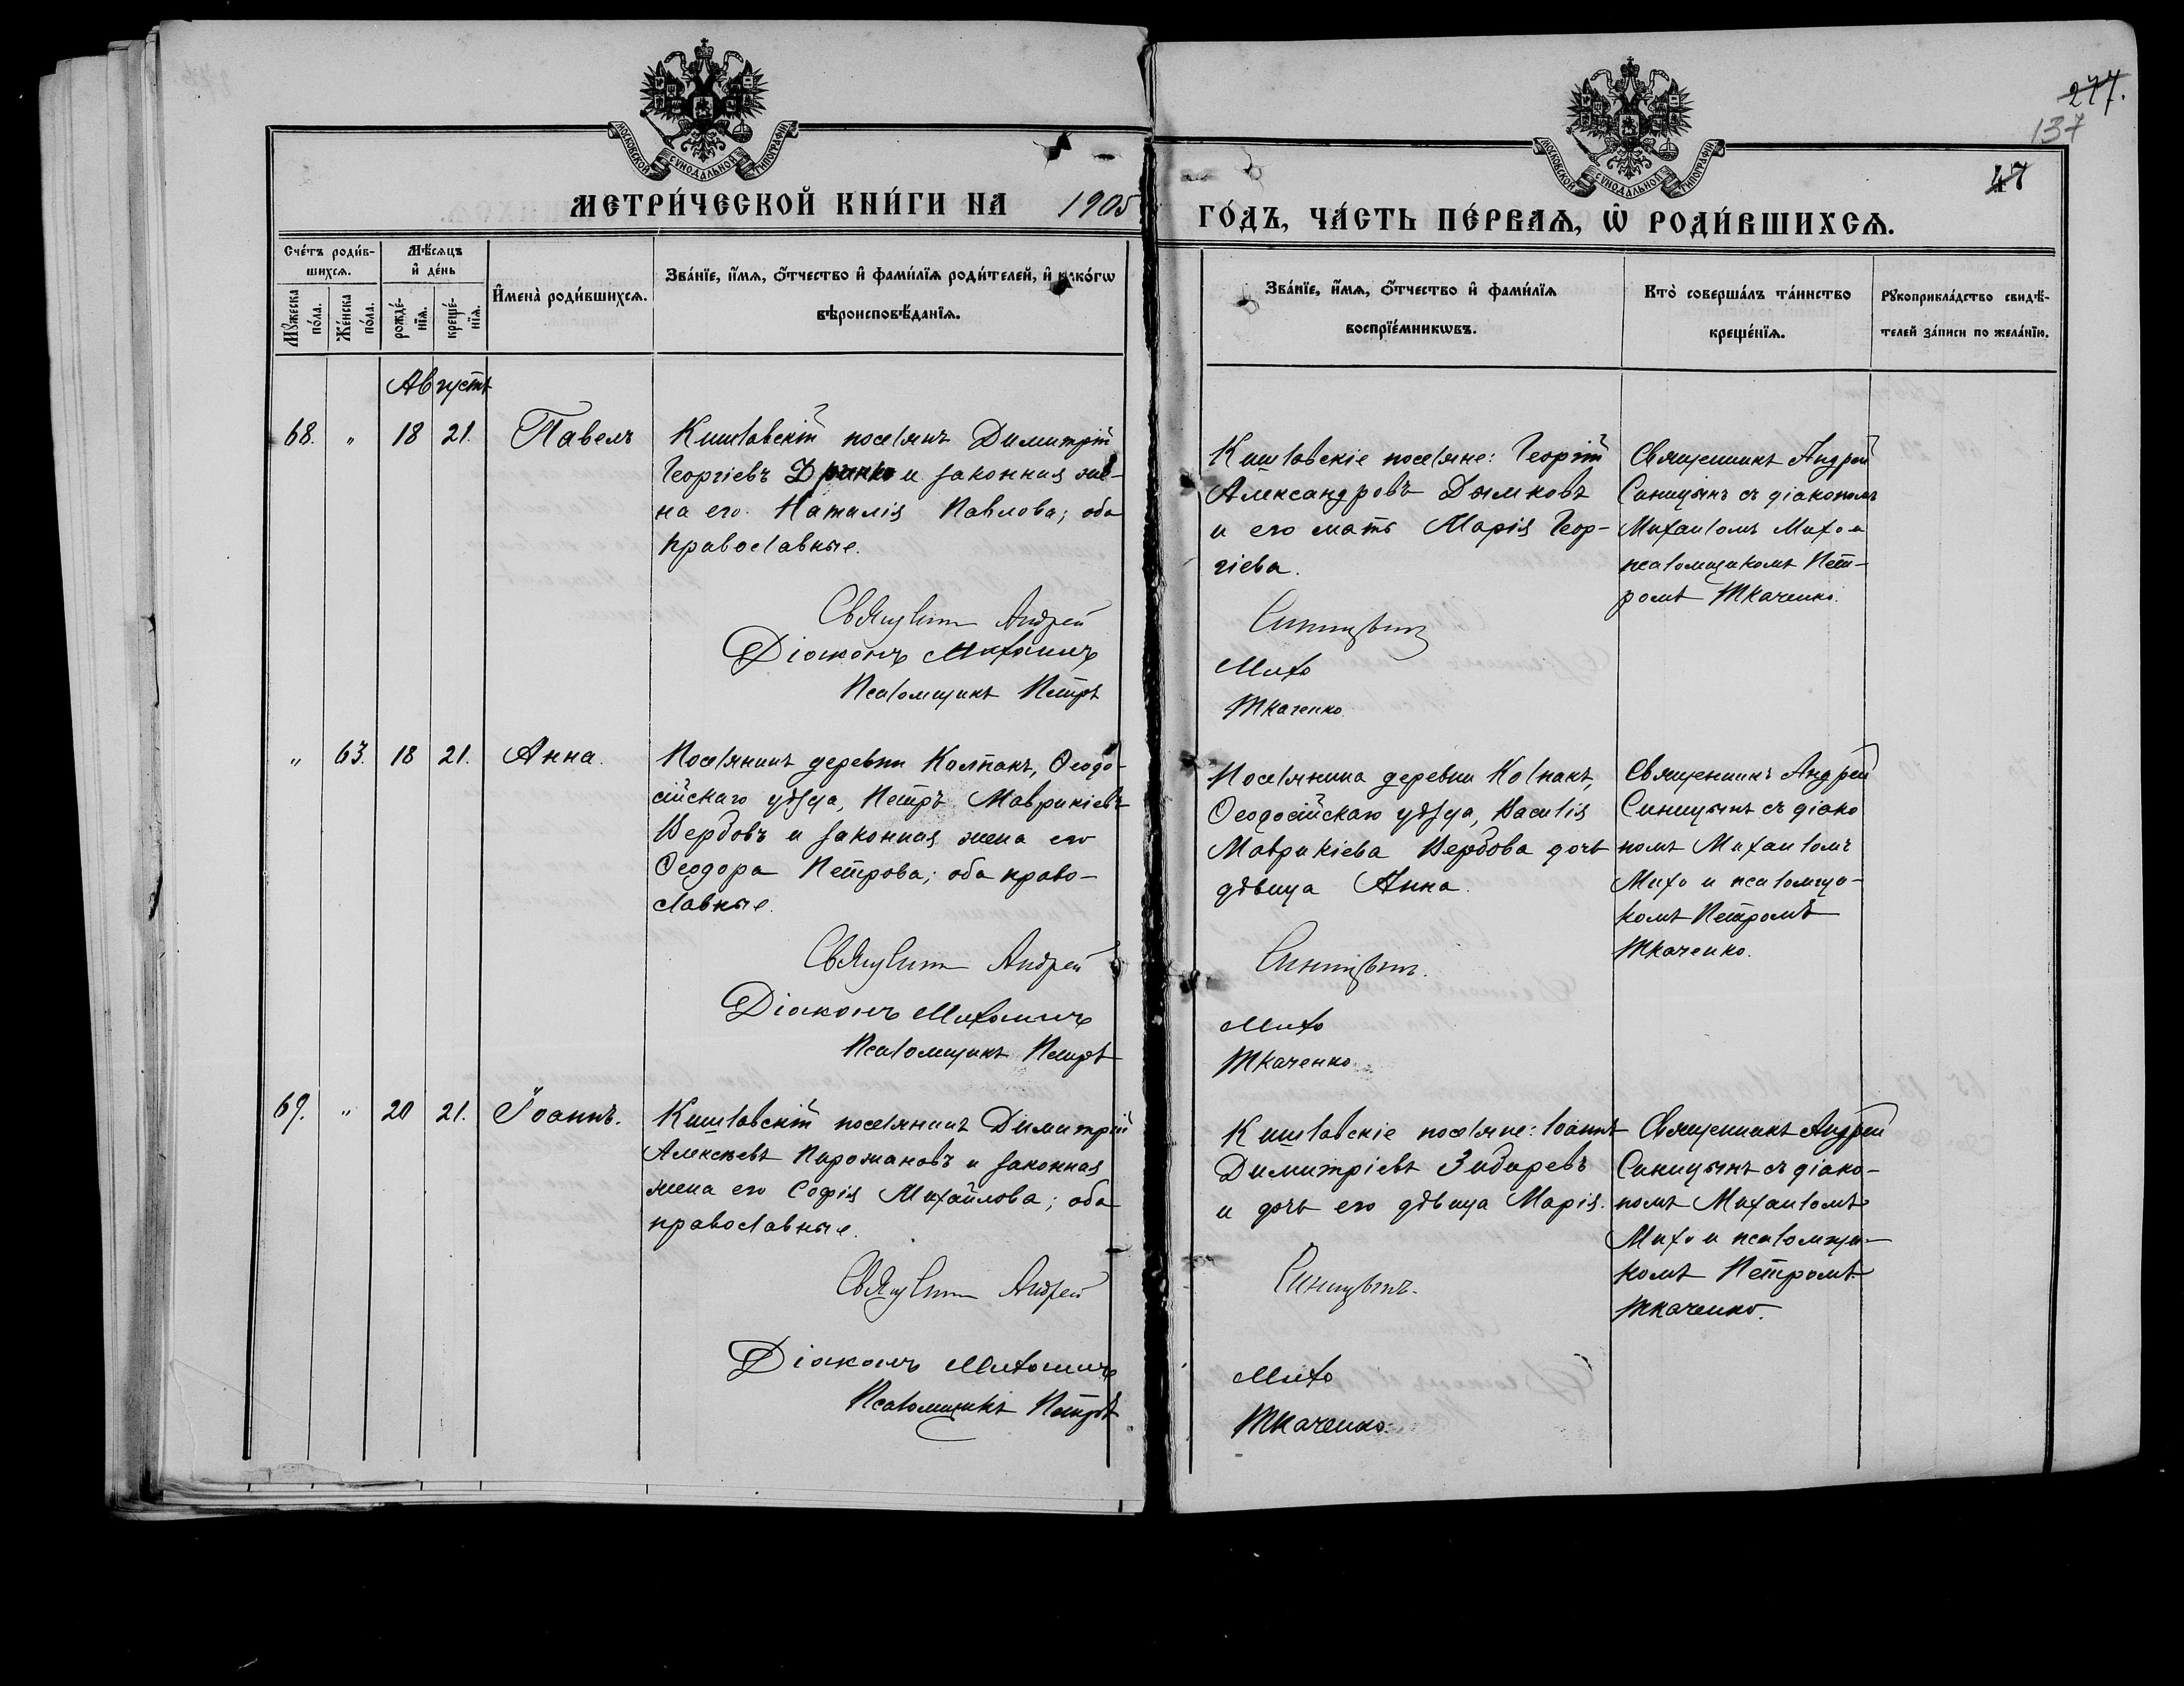 277.
137
47
МОСКОВСКОЙ СѴНОДАЛЬНОЙ ТИПОГРАФІИ
МОСКОВСКОЙ СѴНОДАЛЬНОЙ ТИПОГРАФІИ
МЕТРИ́ЧЕСКОЙ КНИ́ГИ НА 1905
ГО́ДЪ, ЧА́СТЬ ПЕ́РВАѦ, Ѡ҆ РОДИ́ВШИХСѦ.
Сче́тъ роди́в-
шихсѧ.
Мѣ́сѧцъ
и҆ де́нь
Мꙋ́жеска
по́ла.
Же́нска
по́ла.
рожде́-
нїѧ.
креще́-
нїѧ.
И҆мена̀ роди́вшихсѧ.
Зва́нїе, и҆́мѧ, ѻ҆́тчество и҆ фами́лїѧ роди́телей, и҆ како́гѡ
вѣроисповѣ́данїѧ.
Зва́нїе, и҆́мѧ, ѻ҆́тчество и҆ фами́лїѧ
воспрїе́мникѡвъ.
Кто̀ соверша́лъ та́инство
креще́нїѧ.
Рꙋкоприкла́дство свидѣ́-
телей за́писи по жела́нїю.
Августъ
68. " 18 21. Павелъ
Кишлавскій поселянъ Димитрій
Георгіевъ и законная же-
на его Наталія Павлова; оба
православные.
Священникъ Андрей
Діаконъ Михаилъ
Псаломщикъ Петръ
Кишлавскіе поселяне: Георгій
Александровъ Дымковъ
и его мать Марія Геор-
гіева.
Синицынъ
Михо
Ткаченко.
Священникъ Андрей
Синицынъ съ діакономъ
Михаиломъ Михо и
псаломщикомъ Пет-
ромъ Ткаченко.
" 63. 18 21. Анна.
Поселянинъ деревни Колпакъ, Ѳеодо-
сійскаго уѣзда, Петръ Маврикіевъ
Вербовъ и законная жена его
Ѳеодора Петрова; оба право-
славные.
Священникъ Андрей
Діаконъ Михаилъ
Псаломщикъ Петръ
Поселянина деревни Колпакъ,
Ѳеодосійскаго уѣзда, Василія
Маврикіева Вербова дочь
дѣвица Анна.
Синицынъ.
Михо
Ткаченко.
Священникъ Андрей
Синицынъ съ діако
номъ Михаиломъ
Михо и псаломщи-
комъ Петромъ
Ткаченко.
69. " 20 21. Іоаннъ.
Кишлавскій поселянинъ Димитрій
Алексѣевъ Пирожановъ и законная
жена его Софія Михайлова; оба
православные.
Священникъ Андрей
Діаконъ Михаилъ
Псаломщикъ Петръ
Кишлавскіе поселяне: Іоаннъ
Димитріевъ Зибаревъ
и дочь его дѣвица Марія.
Синицынъ.
Михо
Ткаченко.
Священникъ Андрей
Синицынъ съ діако-
номъ Михаиломъ
Михо и псаломщи-
комъ Петромъ
Ткаченко.